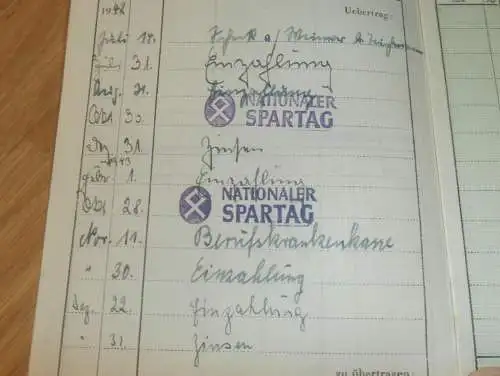 1942 Uebertrag:
Juli 17.
Juli 31. Einzahlung
Aug. 21. Einzahlung
Okt. 30. NATIONALER SPARTAG
Dez. 31. Zinsen
1943
Febr. 1. Einzahlung
Okt. 28. NATIONALER SPARTAG
Nov. 11. Berufskrankenkasse
" 30. Einzahlung
Dez. 22. Einzahlung
" 31. Zinsen
zu übertragen: